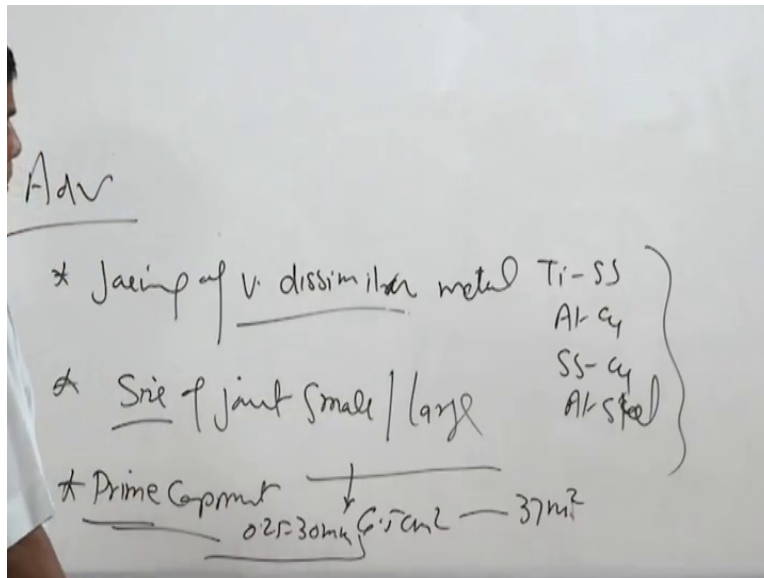 Adv
* Joining of v. dissimilar metal Ti-SS
Al-Cu
SS-Cu
* Size of joint small / large
Al-Steel
* Prime Component
0.25-30mm 6.5cm2 — 37m2